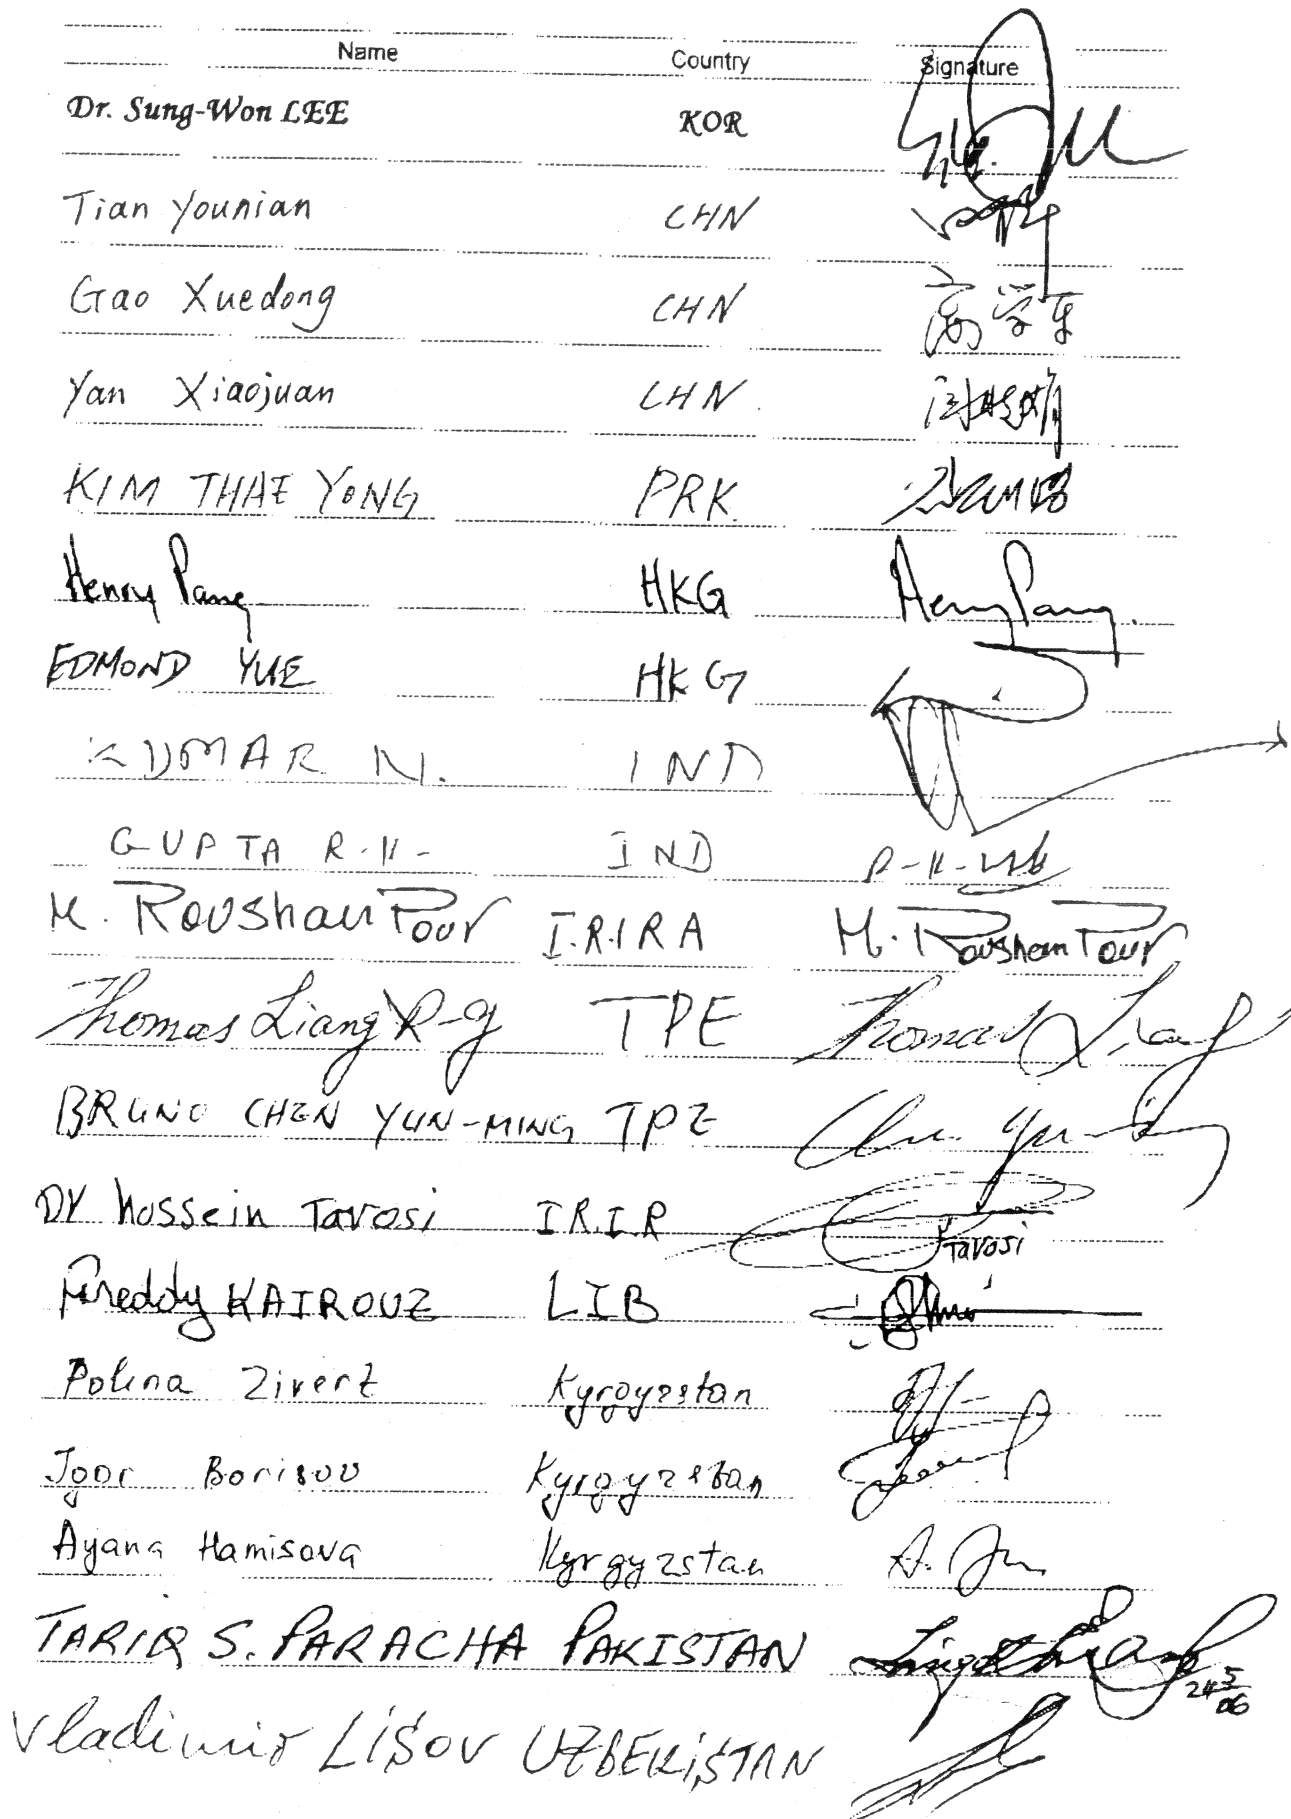 Name Country Signature
Dr. Sung-Won LEE KOR
Tian Younian CHN
Gao Xuedong CHN 高学东
Yan Xiaojuan CHN 闫晓娟
KIM THAE YONG PRK.
Henry Pang HKG Henry Pang.
EDMOND YUE HKG
KUMAR N. IND
GUPTA R.K- IND R-K-
M. RoushanPour I.R.IRA M. RoushanPour
Thomas Liang R-g TPE Thomas Liang
BRUNO CHEN YUN-MING TPE
Dr Hossein Tavosi I.R.I.R Tavosi
Freddy KAIROUZ LIB
Polina Zivert Kyrgyzstan
Igor Borisov Kyrgyzstan
Ayana Hamisova Kyrgyzstan A.
TARIQ S. PARACHA PAKISTAN 24 5/06
Vladimir LISOV UZBEKISTAN